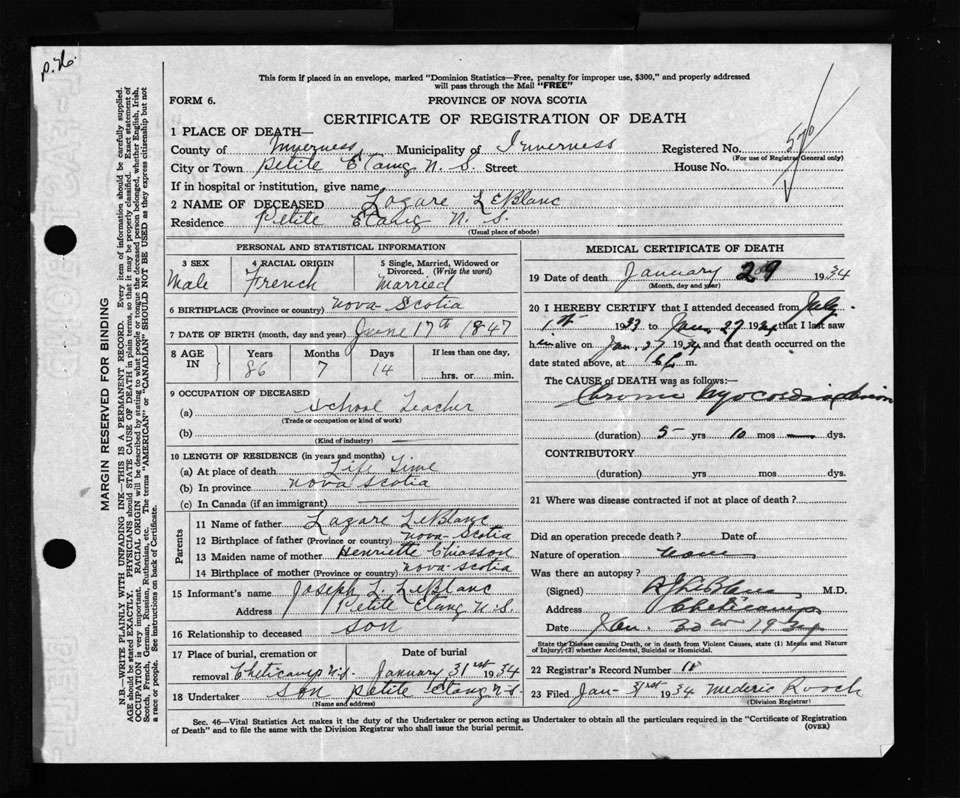 P.N.
This form if placed in an envelope, marked "Dominion Statistics—Free, penalty for improper use, $300," and properly addressed
will pass through the Mail "FREE"
FORM 6.
PROVINCE OF NOVA SCOTIA
CERTIFICATE OF REGISTRATION OF DEATH
1 PLACE OF DEATH—
County of Inverness Municipality of Inverness Registered No. 570
(For use of Registrar General only)
City or Town Petite Etang N. S. Street House No.
If in hospital or institution, give name
2 NAME OF DECEASED Lazare LeBlanc
Residence Petite Etang N. S.
(Usual place of abode)
MARGIN RESERVED FOR BINDING
N.B.—WRITE PLAINLY WITH UNFADING INK—THIS IS A PERMANENT RECORD. Every item of information should be carefully supplied.
AGE should be stated EXACTLY. PHYSICIANS should STATE CAUSE OF DEATH in plain terms, so that it may be properly classified. Exact statement of
OCCUPATION is very important. RACIAL ORIGIN will be described by stating to what people or tongue the deceased person belonged, whether English, Irish,
Scotch, French, German, Russian, Ruthenian, etc. The terms "AMERICAN" or "CANADIAN" SHOULD NOT BE USED as they express citizenship but not
a race or people. See instructions on back of Certificate.
PERSONAL AND STATISTICAL INFORMATION
3 SEX 4 RACIAL ORIGIN 5 Single, Married, Widowed or
Divorced. (Write the word)
Male French Married
6 BIRTHPLACE (Province or country) Nova Scotia
7 DATE OF BIRTH (month, day and year) June 17th 1847
8 AGE IN Years Months Days If less than one day,
86 7 14 hrs. or min.
9 OCCUPATION OF DECEASED
(a) School Teacher
(Trade or occupation or kind of work)
(b)
(Kind of industry)
10 LENGTH OF RESIDENCE (in years and months)
(a) At place of death Life Time
(b) In province Nova Scotia
(c) In Canada (if an immigrant)
Parents
11 Name of father Lazare LeBlanc
12 Birthplace of father (Province or country) Nova Scotia
13 Maiden name of mother Henriette Chiasson
14 Birthplace of mother (Province or country) Nova Scotia
15 Informant's name Joseph L. LeBlanc
Address Petite Etang N.S.
16 Relationship to deceased Son
17 Place of burial, cremation or Date of burial
removal Cheticamp N.S. January 31st 1934
18 Undertaker Son Petite Etang N.S.
(Name and address)
MEDICAL CERTIFICATE OF DEATH
19 Date of death January 29 1934
(Month, day and year)
20 I HEREBY CERTIFY that I attended deceased from July
1st 1933 to Jan. 27 1934 that I last saw
him alive on Jan. 27 1934 and that death occurred on the
date stated above, at m.
The CAUSE of DEATH was as follows:—
Chronic
(duration) 5 yrs 10 mos — dys.
CONTRIBUTORY
(duration) yrs mos dys.
21 Where was disease contracted if not at place of death?
Did an operation precede death? Date of
Nature of operation none
Was there an autopsy?
(Signed) LeBlanc M.D.
Address Cheticamp
Date Jan. 30 1934
State the Disease causing Death, or in death from Violent Causes, state (1) Means and Nature
of Injury, (2) whether Accidental, Suicidal or Homicidal.
22 Registrar's Record Number 18
23 Filed Jan 31st 1934 Mederic Roach
(Division Registrar)
Sec. 46—Vital Statistics Act makes it the duty of the Undertaker or person acting as Undertaker to obtain all the particulars required in the "Certificate of Registration
of Death" and to file the same with the Division Registrar who shall issue the burial permit.
(OVER)